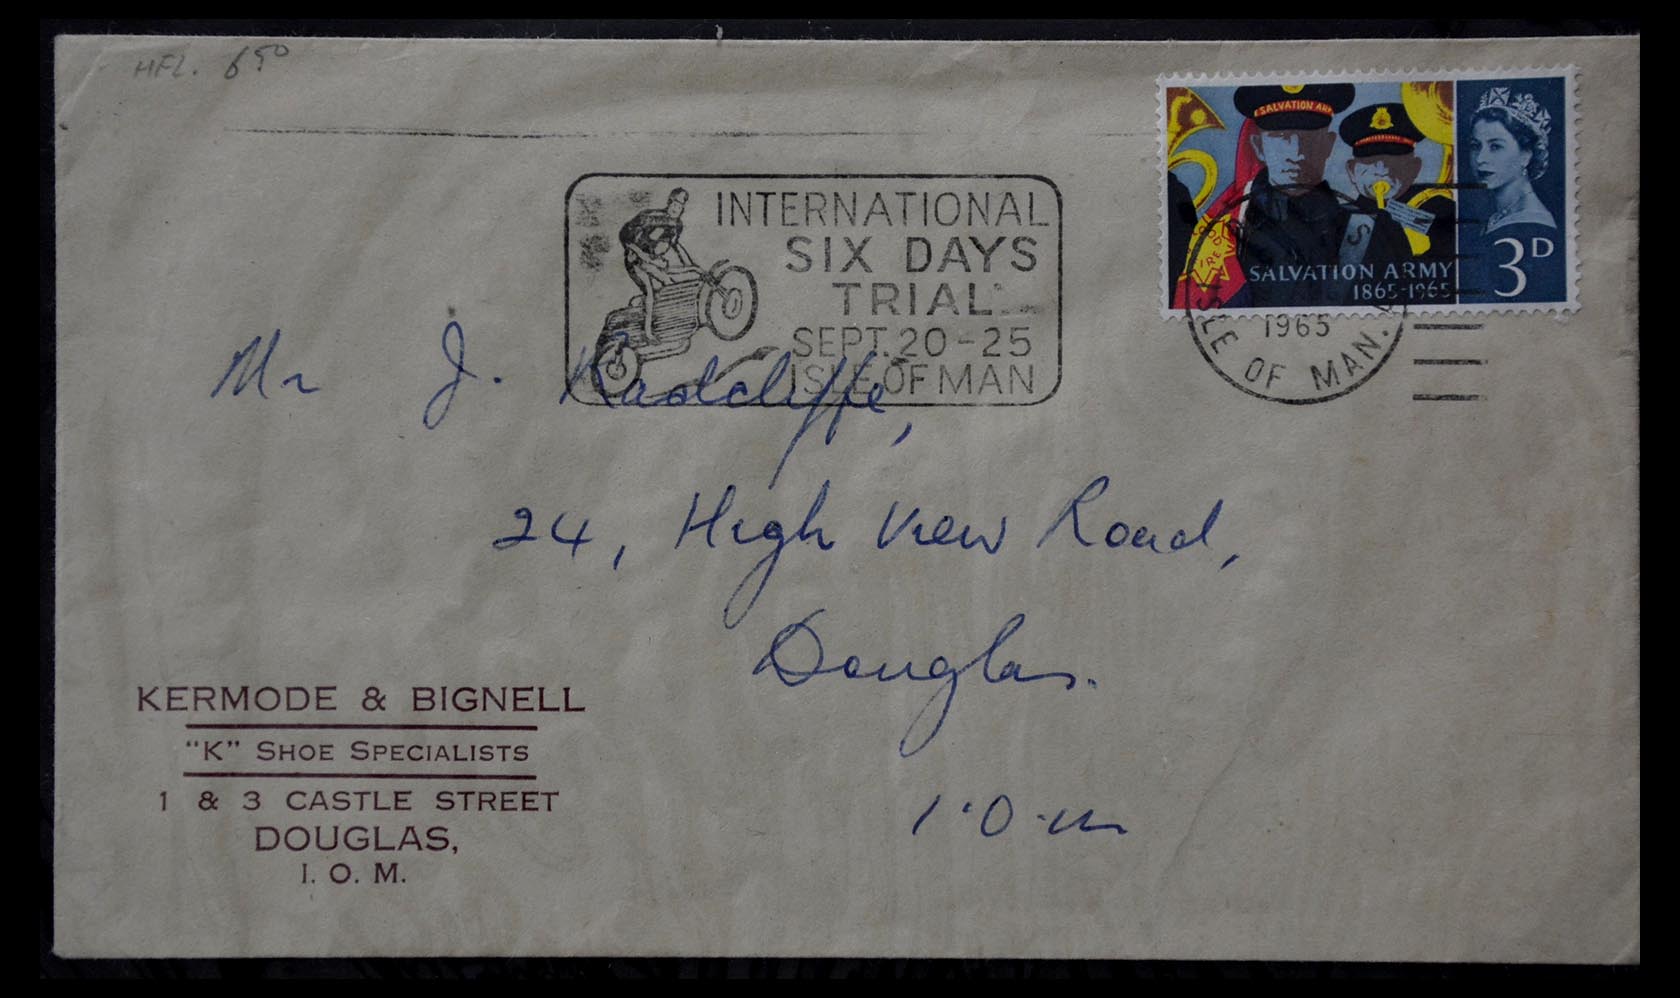 HFL. 650
INTERNATIONAL
SIX DAYS
TRIAL
SEPT. 20-25
ISLE OF MAN
SALVATION ARMY
SALVATION ARMY
1865-1965
3D
1965
ISLE OF MAN.
Mr J. Radcliffe,
24, High View Road,
Douglas.
I.O.M
KERMODE & BIGNELL
"K" SHOE SPECIALISTS
1 & 3 CASTLE STREET
DOUGLAS,
I. O. M.